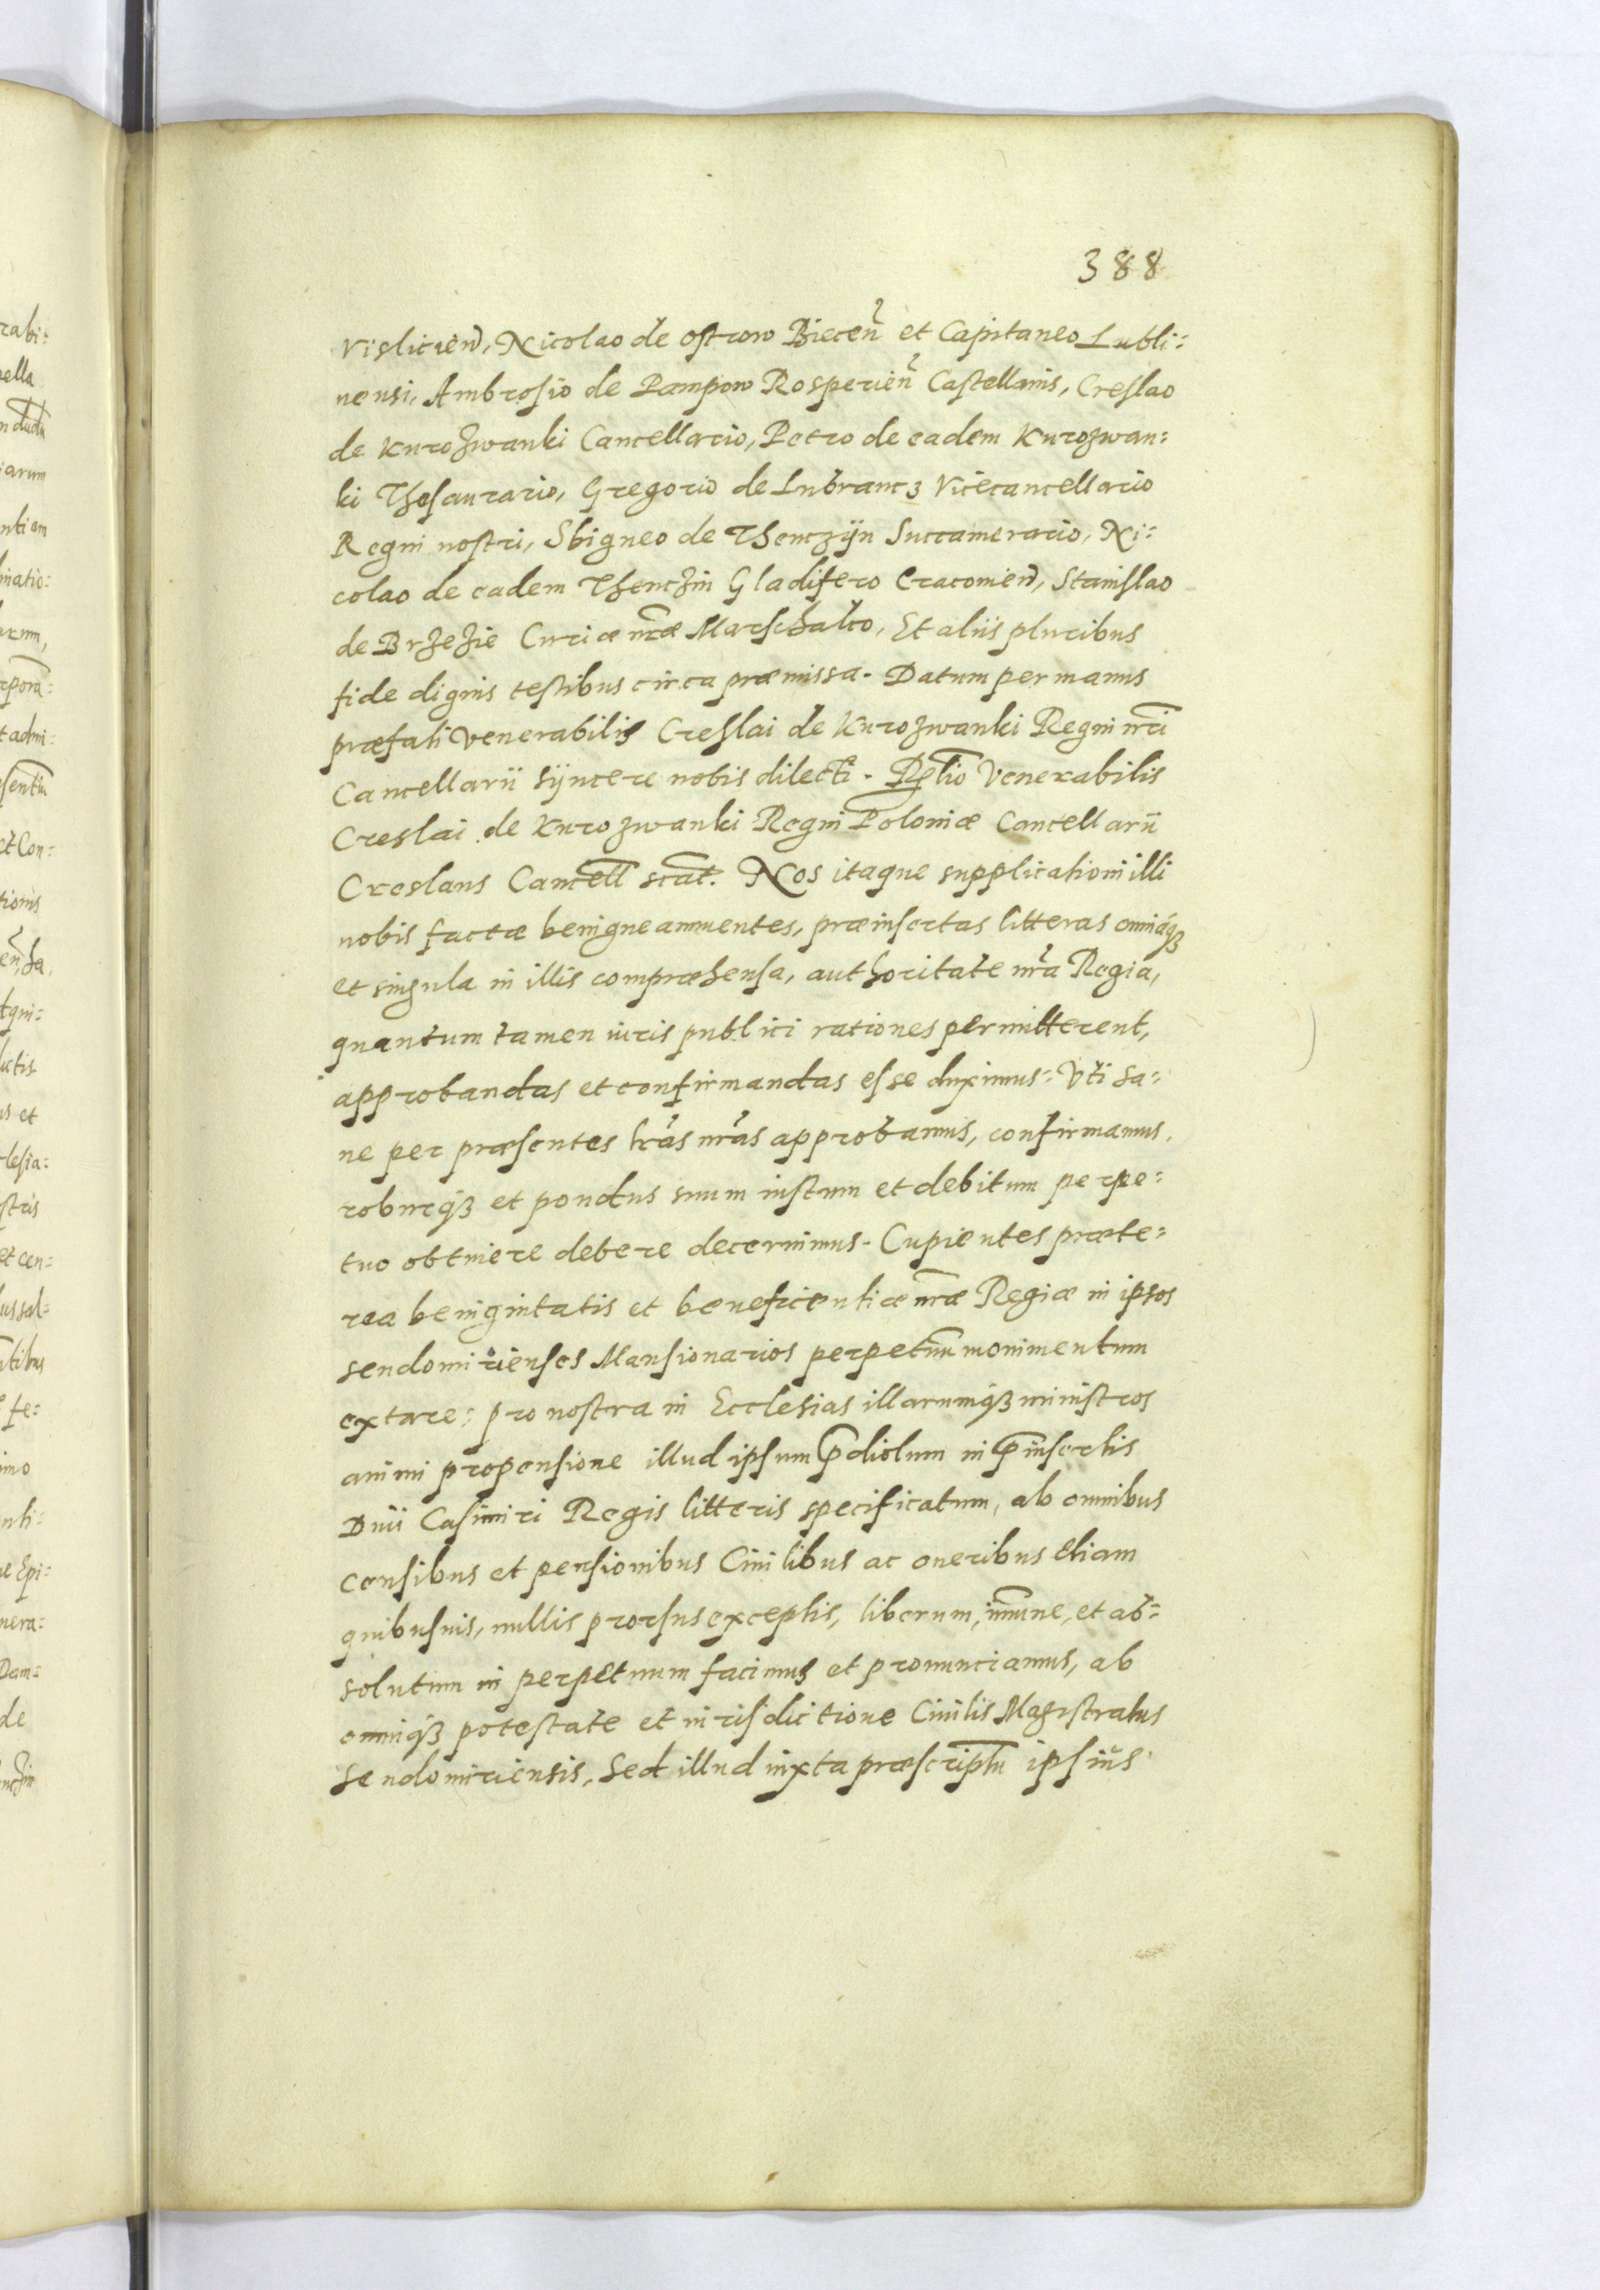 388
Vislicien̄, Nicolao de Ostrow Biecen̄ et Capitaneo Lubli:
nensi, Ambrosio de Pampow Rosperien̄ Castellanis, Creslao
de Kurozwanki Cancellario, Petro de eadem Kurozwan:
ki Thesaurario, Gregorio de Lubrancz Vicecancellario
Regni nostri, Sbigneo de Thenczÿn Succamerario, Ni:
colao de eadem Thenczin Gladifero Cracovien̄, Stanislao
de Brzezie Curiæ nr̄æ Marschalco, Et aliis pluribus
fide dignis testibus circa præmissa. Datum per manus
præfati Venerabilis Creslai de Kurozwanki Regni nr̄i
Cancellarii sÿncere nobis dilecti. Rel̄tio Venerabilis
Creslai de Kurozwanki Regni Poloniæ Cancellarii
Creslaus Cancell̄ scat̄. Nos itaque supplicationi illi
nobis factæ benigne annuentes, præinsertas litteras omniaq́ꝫ
et singula in illis compræhensa, authoritate nr̄a Regia,
quantum tamen iuris publici rationes permitterent,
approbandas et confirmandas esse duximus: Vti sa:
ne per præsentes lr̄as nr̄as approbamus, confirmamus,
roburq́ꝫ et pondus suum iustum et debitum perpe:
tuo obtinere debere decernimus. Cupientes præte:
rea benignitatis et beneficentiæ nr̄æ Regiæ in ipsos
Sendomirienses Mansionarios perpetuū monimentum
extare: pro nostra in Ecclesias illarumq́ꝫ ministros
animi propensione illud ipsum p̄diolum in p̄insertis
Diui Casimiri Regis litteris specificatum, ab omnibus
censibus et pensionibus Ciuilibus ac oneribus etiam
quibusuis, nullis prorsus exceptis, liberum, im̄une, et ab:
solutum in perpetuum facimus et pronunciamus, ab
omniq́ꝫ potestate et iurisdictione Ciuilis Magistratus
Sendomiriensis, Sed illud iuxta præscriptū ipsius